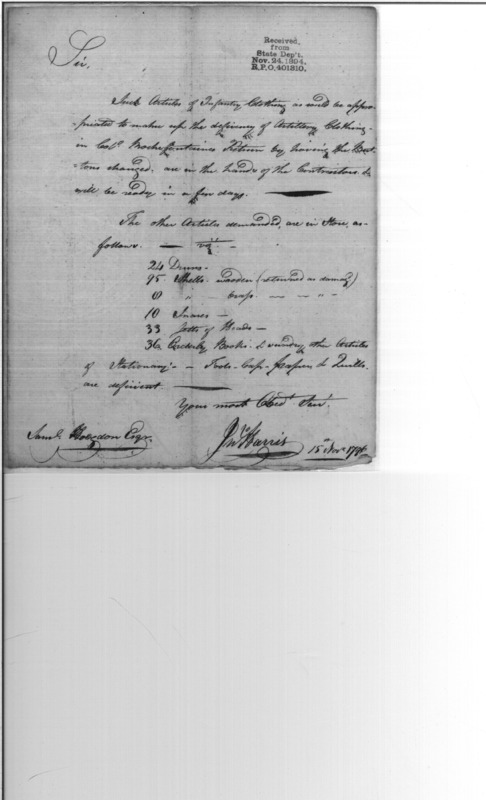 Received,
from
State Dep't.
Nov. 24. 1894.
R.P.O. 401810.
Sir,
Such Articles of Infantry Clothing as could be appro-
-priated to make up the deficiency of Artillery Clothing
in Colo. Rochefontaines Return by having the But-
-tons changed, are in the hands of the Contractors &
will be ready in a few days.
The other Articles demanded, are in Store, as
follows. — vizt.
24 Drums -
95 wooden (returned as damag'd)
10 Snares -
33 Setts of Heads -
36 Orderly Books & sundry other Articles
of Stationary - Fools-Cap - & Quills
are deficient
Your most Obedt. Servt.
Saml. Hodgdon Esqr.
Jno. Harris
15 Novr 1794